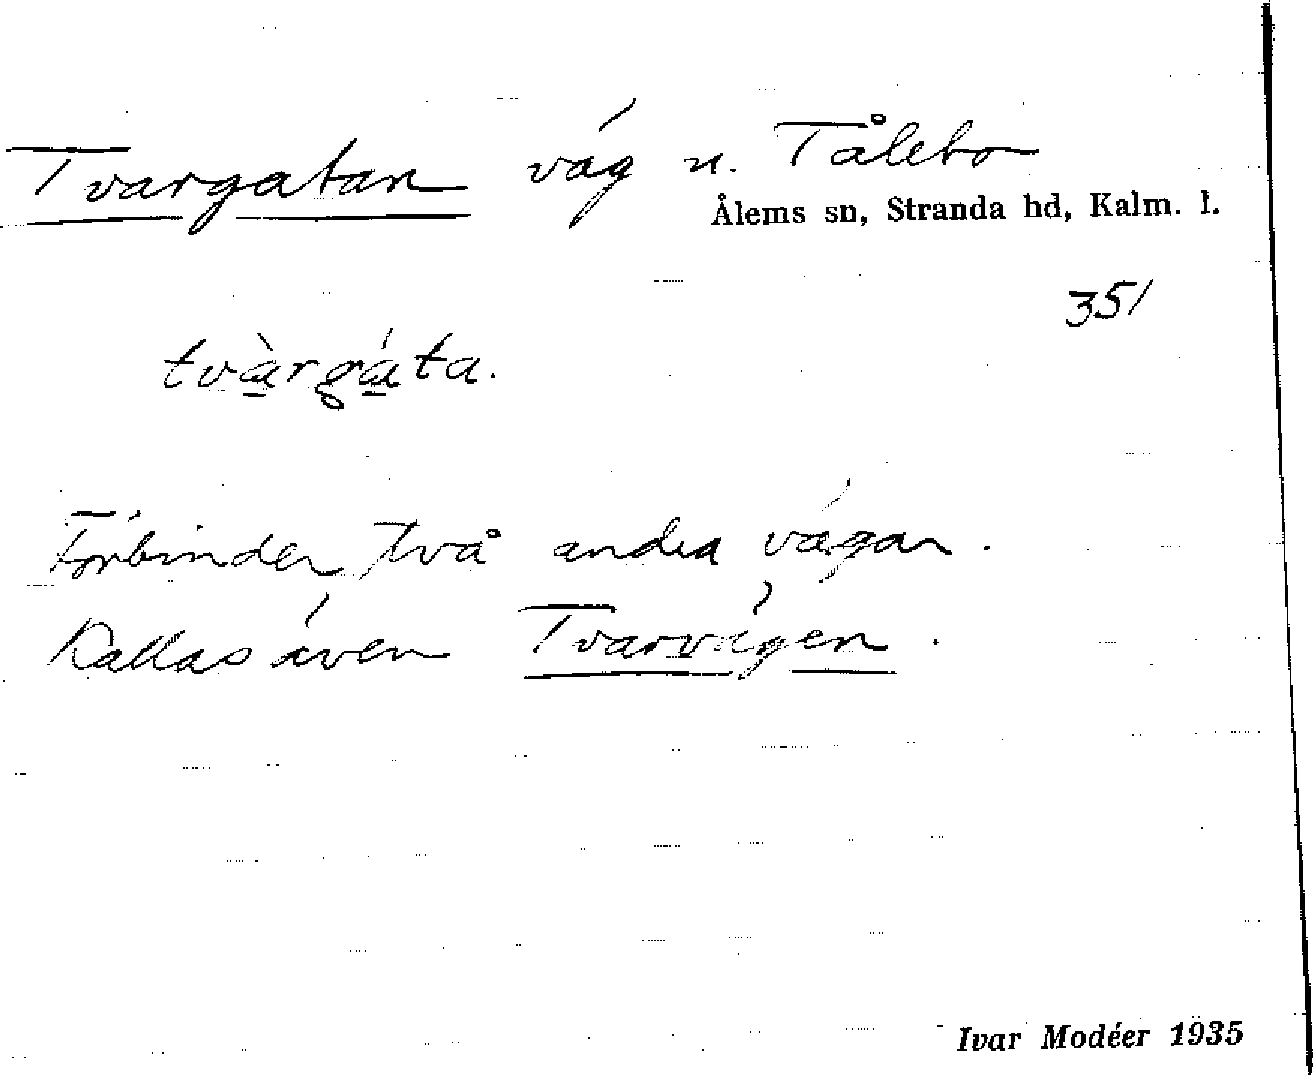 Tvärgatan väg n. Tålebo
Ålems sn, Stranda hd, Kalm. l.
351
tvàrgáta.
Förbinder två andra vägar.
Kallas även Tvärvägen.
Ivar Modéer 1935